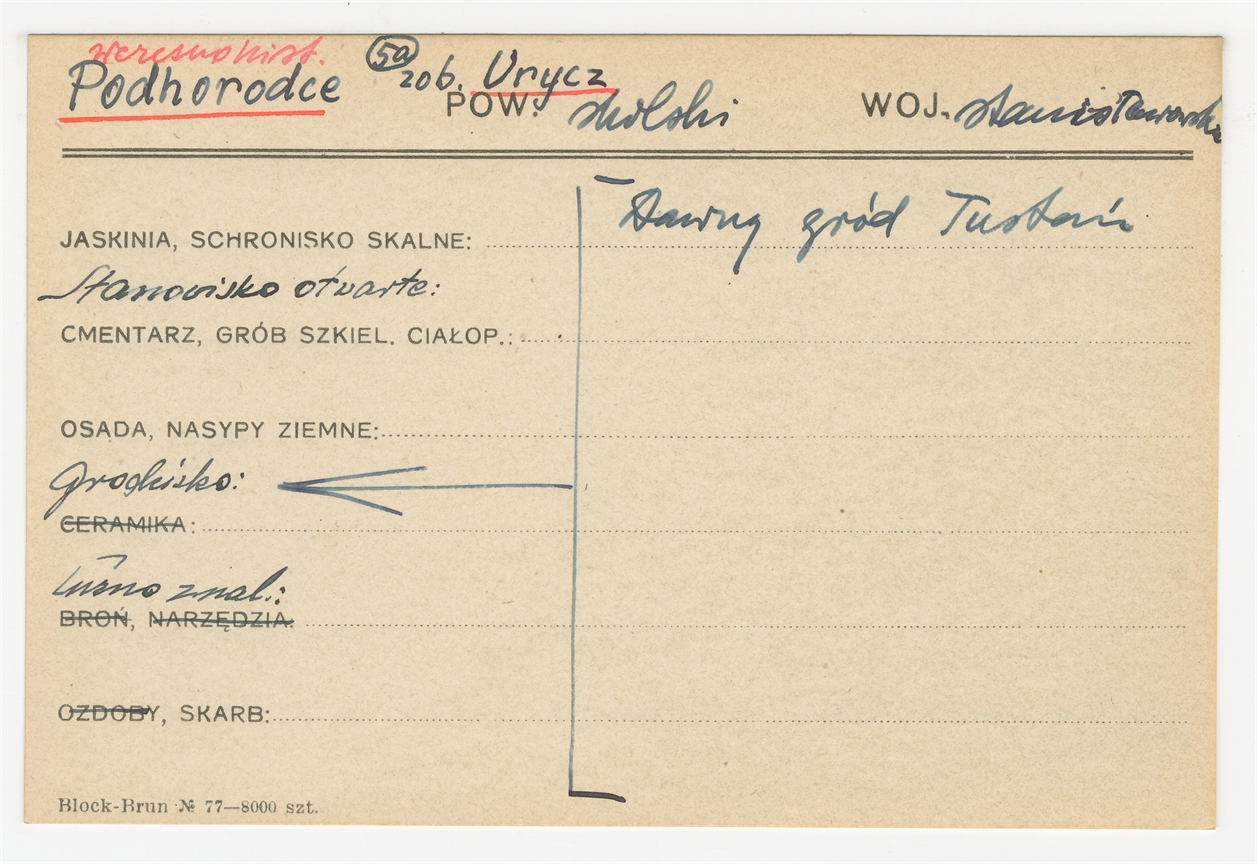 wczesnohist.
Podhorodce (5a) zob. Urycz
POW: skolski WOJ. stanisławowskie
– Dawny gród Tustań
JASKINIA, SCHRONISKO SKALNE:
Stanowisko otwarte:
CMENTARZ, GRÓB SZKIEL. CIAŁOP.:
OSADA, NASYPY ZIEMNE:
Grodzisko:
CERAMIKA:
Luźno znal.:
BROŃ, NARZĘDZIA.
OZDOBY, SKARB:
Block-Brun № 77—8000 szt.